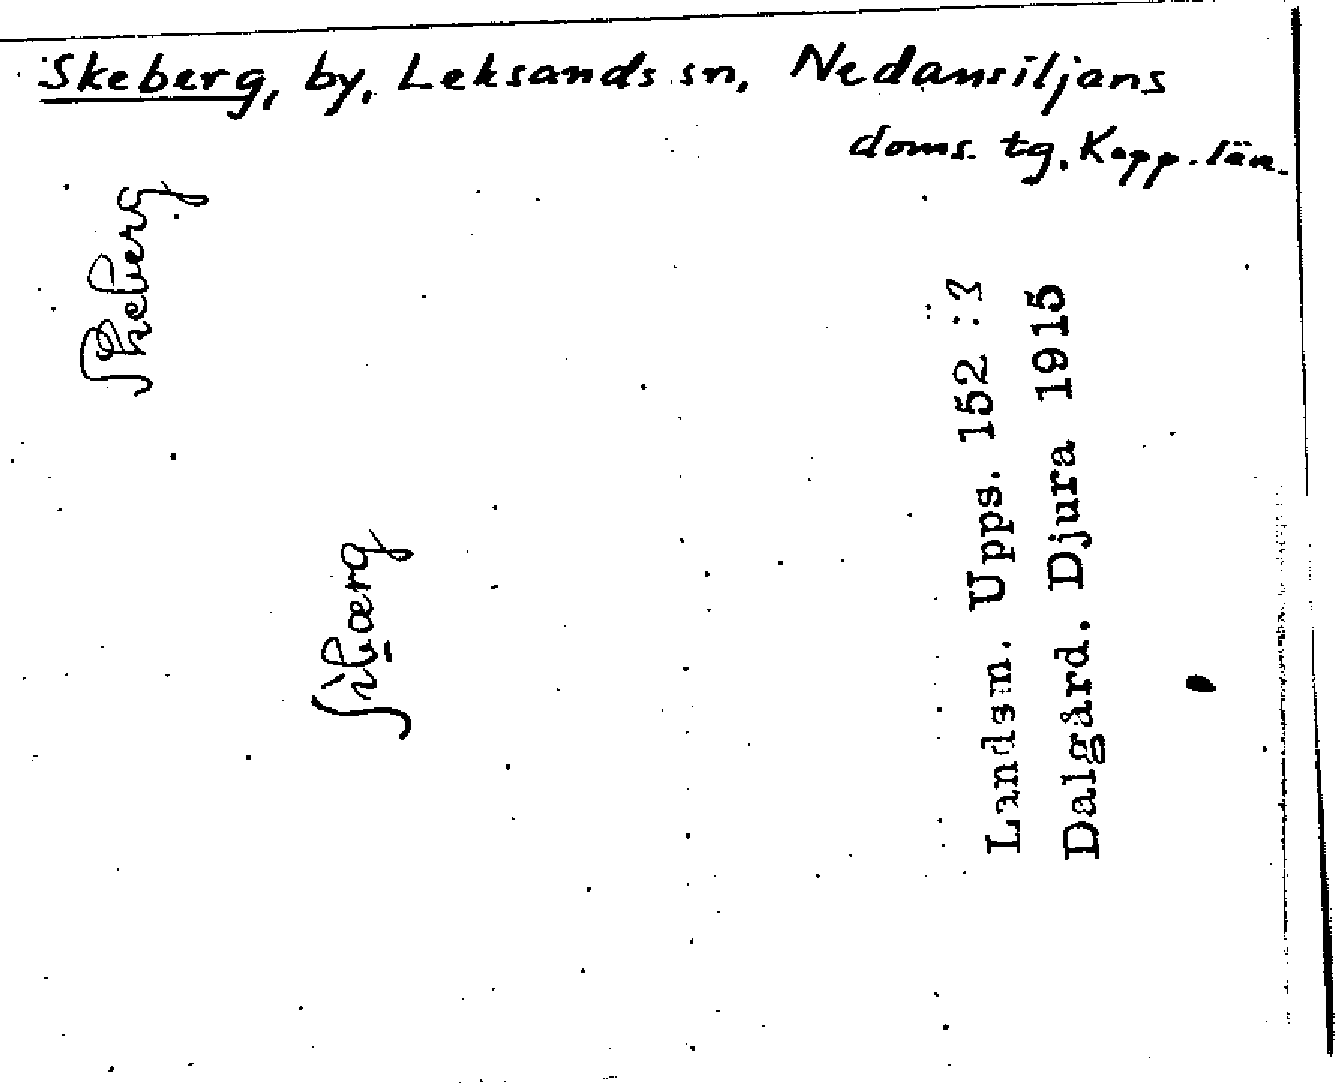 Skeberg, by, Leksands sn, Nedansiljans
doms. tg. Kopp. län.
Skeberg
Landsm. Upps. 152 : 3
Dalgård. Djura 1915